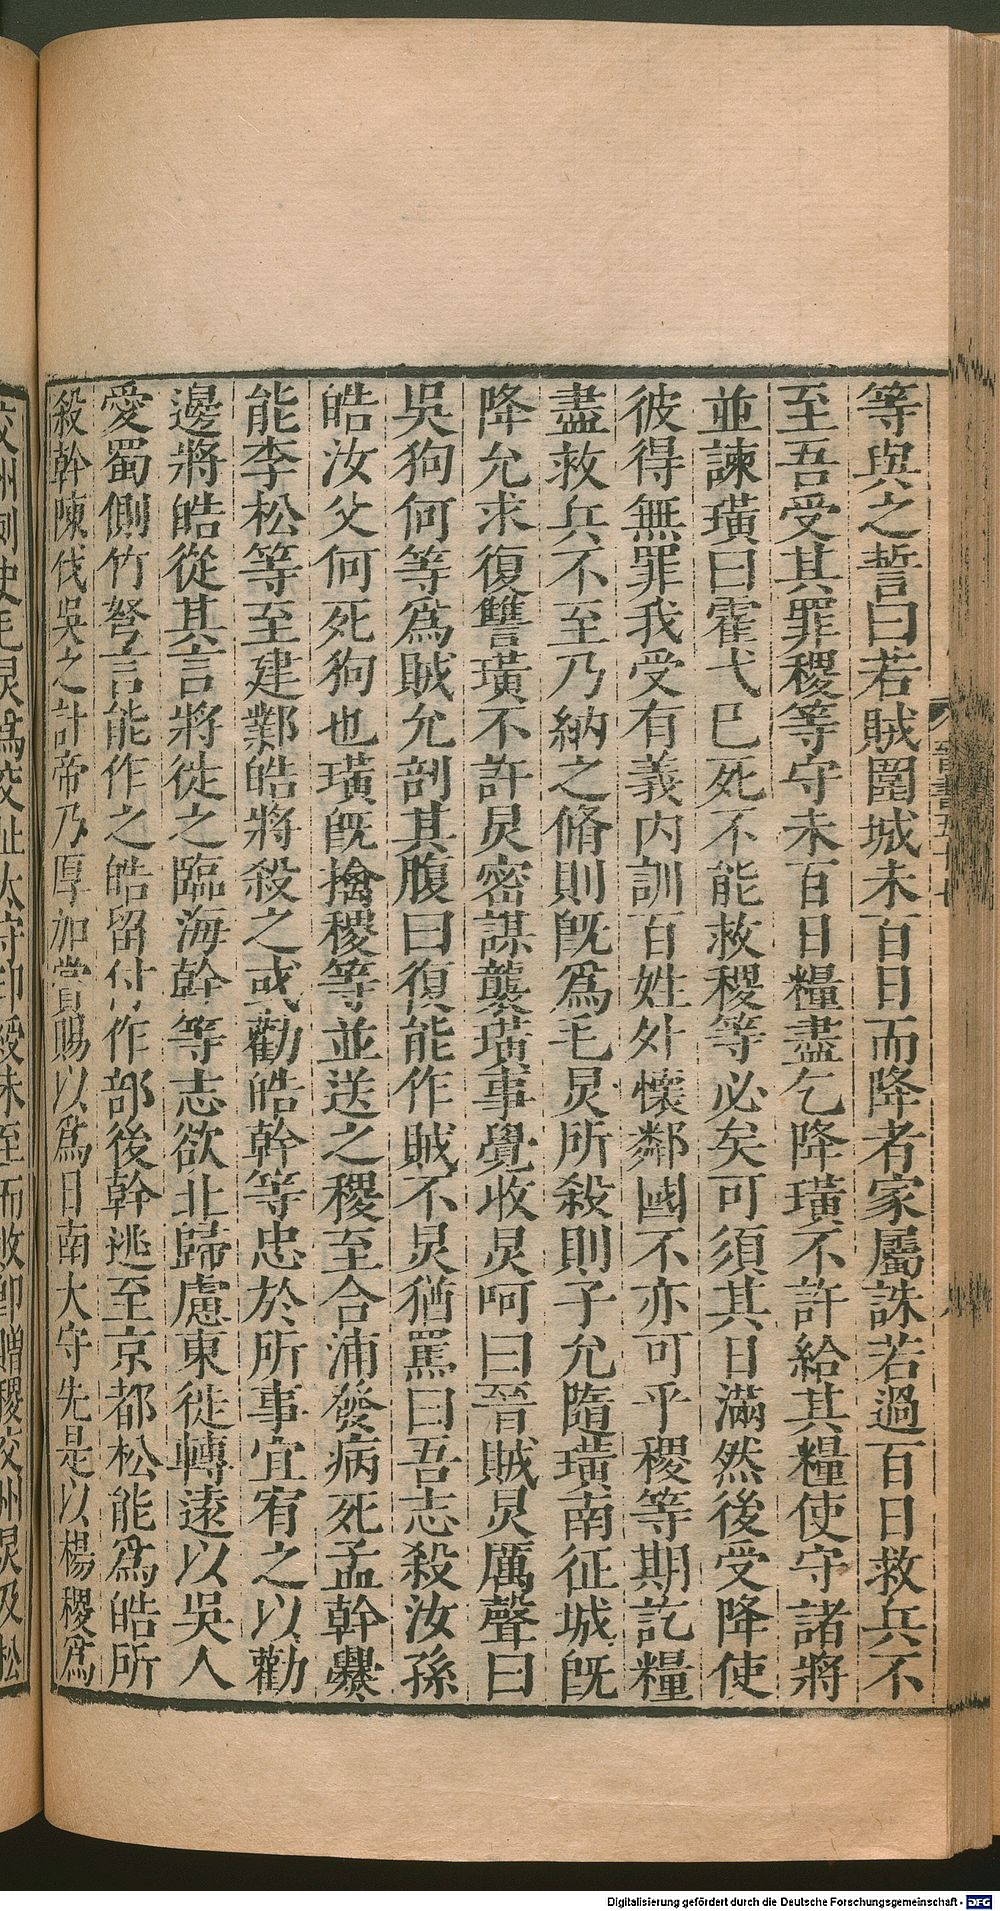 等與之誓曰若賊圍城未百日而降者家屬誅若過百日救兵不
至吾受其罪稷等守未百日糧盡乞降璜不許給其糧使守諸將
並諫璜曰霍弋已死不能救稷等必矣可須其日滿然後受降使
彼得無罪我受有義內訓百姓外懷鄰國不亦可乎稷等期訖糧
盡救兵不至乃納之脩則旣爲毛炅所殺則子允隨璜南征城旣
降允求復讐璜不許炅密謀襲璜事覺收炅呵曰晉賊炅厲聲曰
吳狗何等爲賊允剖其腹曰復能作賊不炅猶罵曰吾志殺汝孫
皓汝父何死狗也璜旣擒稷等並送之稷至合浦發病死孟幹爨
能李松等至建鄴皓將殺之或勸皓幹等忠於所事宜宥之以勸
邊將皓從其言將徙之臨海幹等志欲北歸慮東徙轉遠以吳人
愛蜀側竹弩言能作之皓留付作部後幹逃至京都松能爲皓所
殺幹陳伐吳之計帝乃厚加賞賜以爲日南太守先是以楊稷爲
交州刺史毛炅爲交趾太守印綬未至而敗卽贈稷交州炅及松
Digitalisierung gefördert durch die Deutsche Forschungsgemeinschaft - DFG